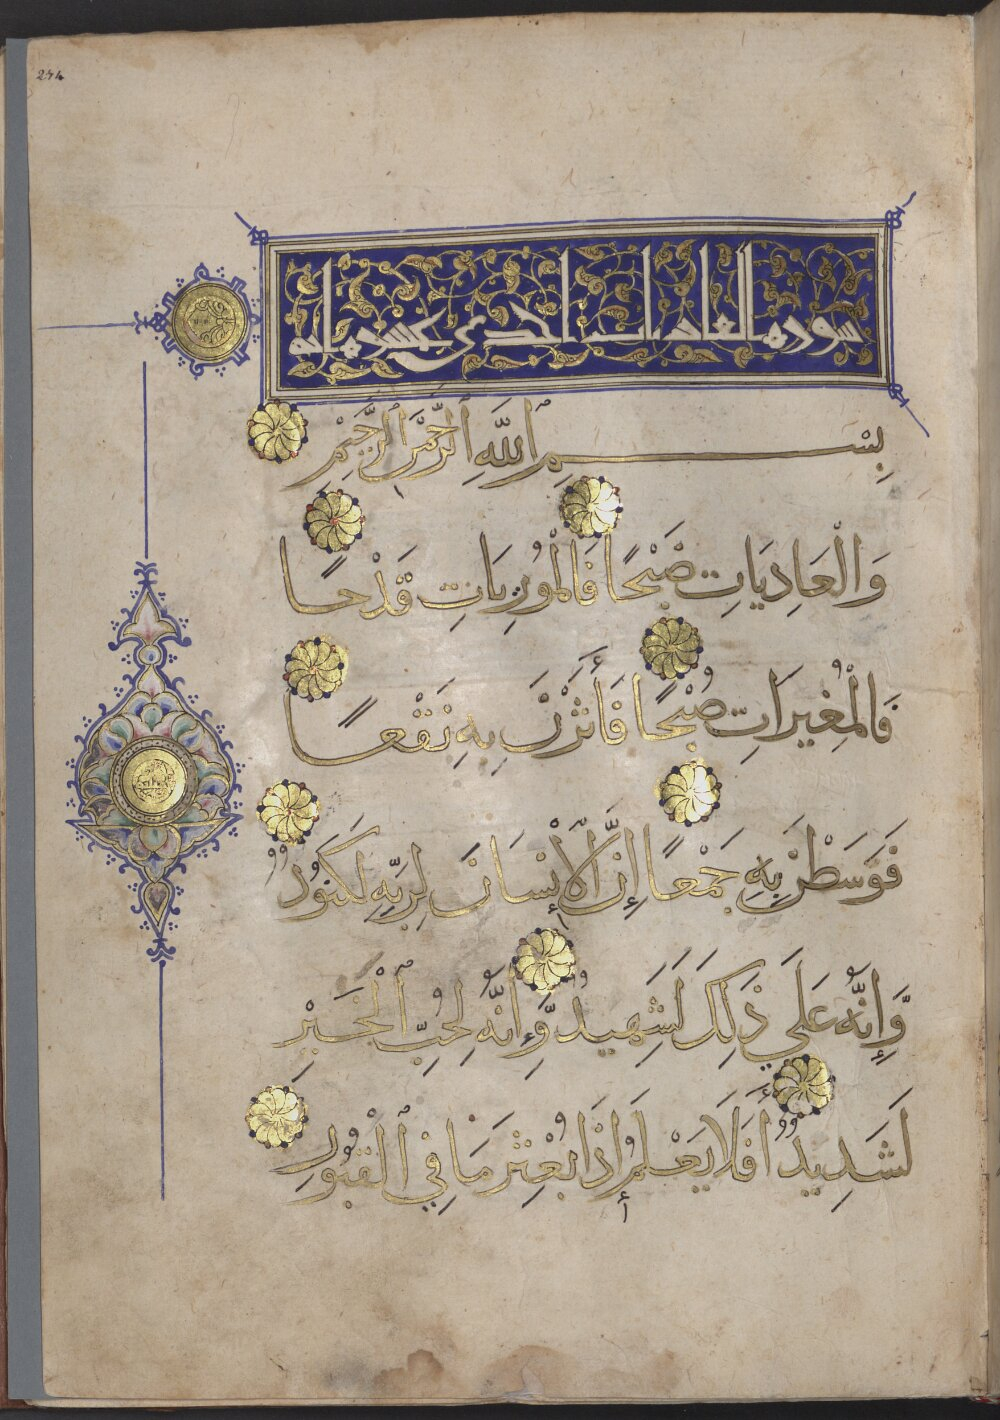 سورة العاديات احدى عشر ماية
بِسْمِ ٱللَّهِ ٱلرَّحْمَٰنِ ٱلرَّحِيمِ
وَالْعَادِيَاتِ ضَبْحًا فَالْمُورِيَاتِ قَدْحًا
فَالْمُغِيرَاتِ صُبْحًا فَأَثَرْنَ بِهِ نَقْعًا
فَوَسَطْنَ بِهِ جَمْعًا إِنَّ الْإِنْسَانَ لِرَبِّهِ لَكَنُودٌ
وَّإِنَّهُ عَلَى ذَلِكَ لَشَهِيدٌ وَّإِنَّهُ لِحُبِّ ٱلْخَيْرِ
لَشَدِيدٌ أَفَلَا يَعْلَمُ إِذَا بُعْثِرَ مَا فِي ٱلْقُبُورِ